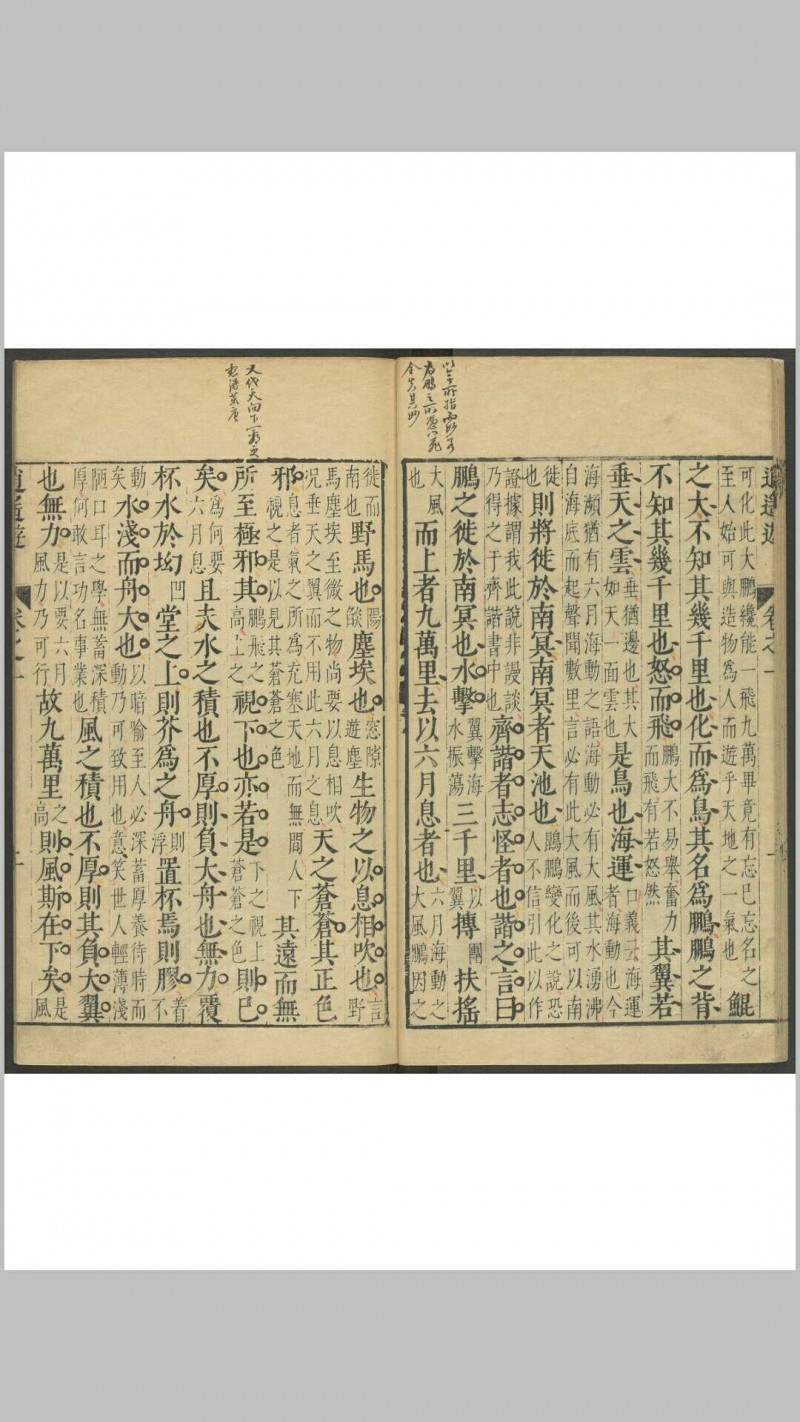 逍遙遊 卷之一
可化此大鵬纔能一飛九萬畢竟有忘已忘名之
至人始可與造物為人而遊乎天地之一氣也
鯤
之大不知其幾千里也化而為鳥其名為鵬鵬之背
不知其幾千里也怒而飛鵬大不易舉奮力而飛有若怒然其翼若
垂天之雲垂猶邊也其大如天一面雲也是鳥也海運口義云海運者海動也今
海瀕猶有六月海動之語海動必有大風其水湧沸
自海底而起聲聞數里言必有此大風而後可以南
徙也則將徙於南冥南冥者天池也鵾鵬變化之說恐人不信引此以作
證據謂我此說非謾談乃得之于齊諧書中也齊諧者志怪者也諧之言曰
鵬之徙於南冥也水擊翼擊海水振蕩三千里以翼摶團扶搖
大風也而上者九萬里去以六月息者也六月海動之大風鵬因之
徙而南也野馬也陽燄塵埃也窓隙遊塵生物之以息相吹也言野
馬塵埃至微之物尚要以息相吹
況垂天之翼而不用此六月之息天之蒼蒼其正色
邪息者氣之所為充塞天地而無間人下視之是以見其蒼蒼之色其遠而無
所至極邪其鵬飛之高上之視下也亦若是下之視上蒼蒼之色則已
矣為何要六月息且夫水之積也不厚則負大舟也無力覆
杯水於坳凹堂之上則芥為之舟則浮置杯焉則膠著不
動矣水淺而舟大也以喻至人必深蓄厚養待時而動乃可致用也意笑世人輕薄淺
陋口耳之學無蓄深積厚何敢言功名事業也風之積也不厚則其負大翼
也無力是以要六月風力乃可行故九萬里之高則風斯在下矣是風
逍遙遊 卷之一